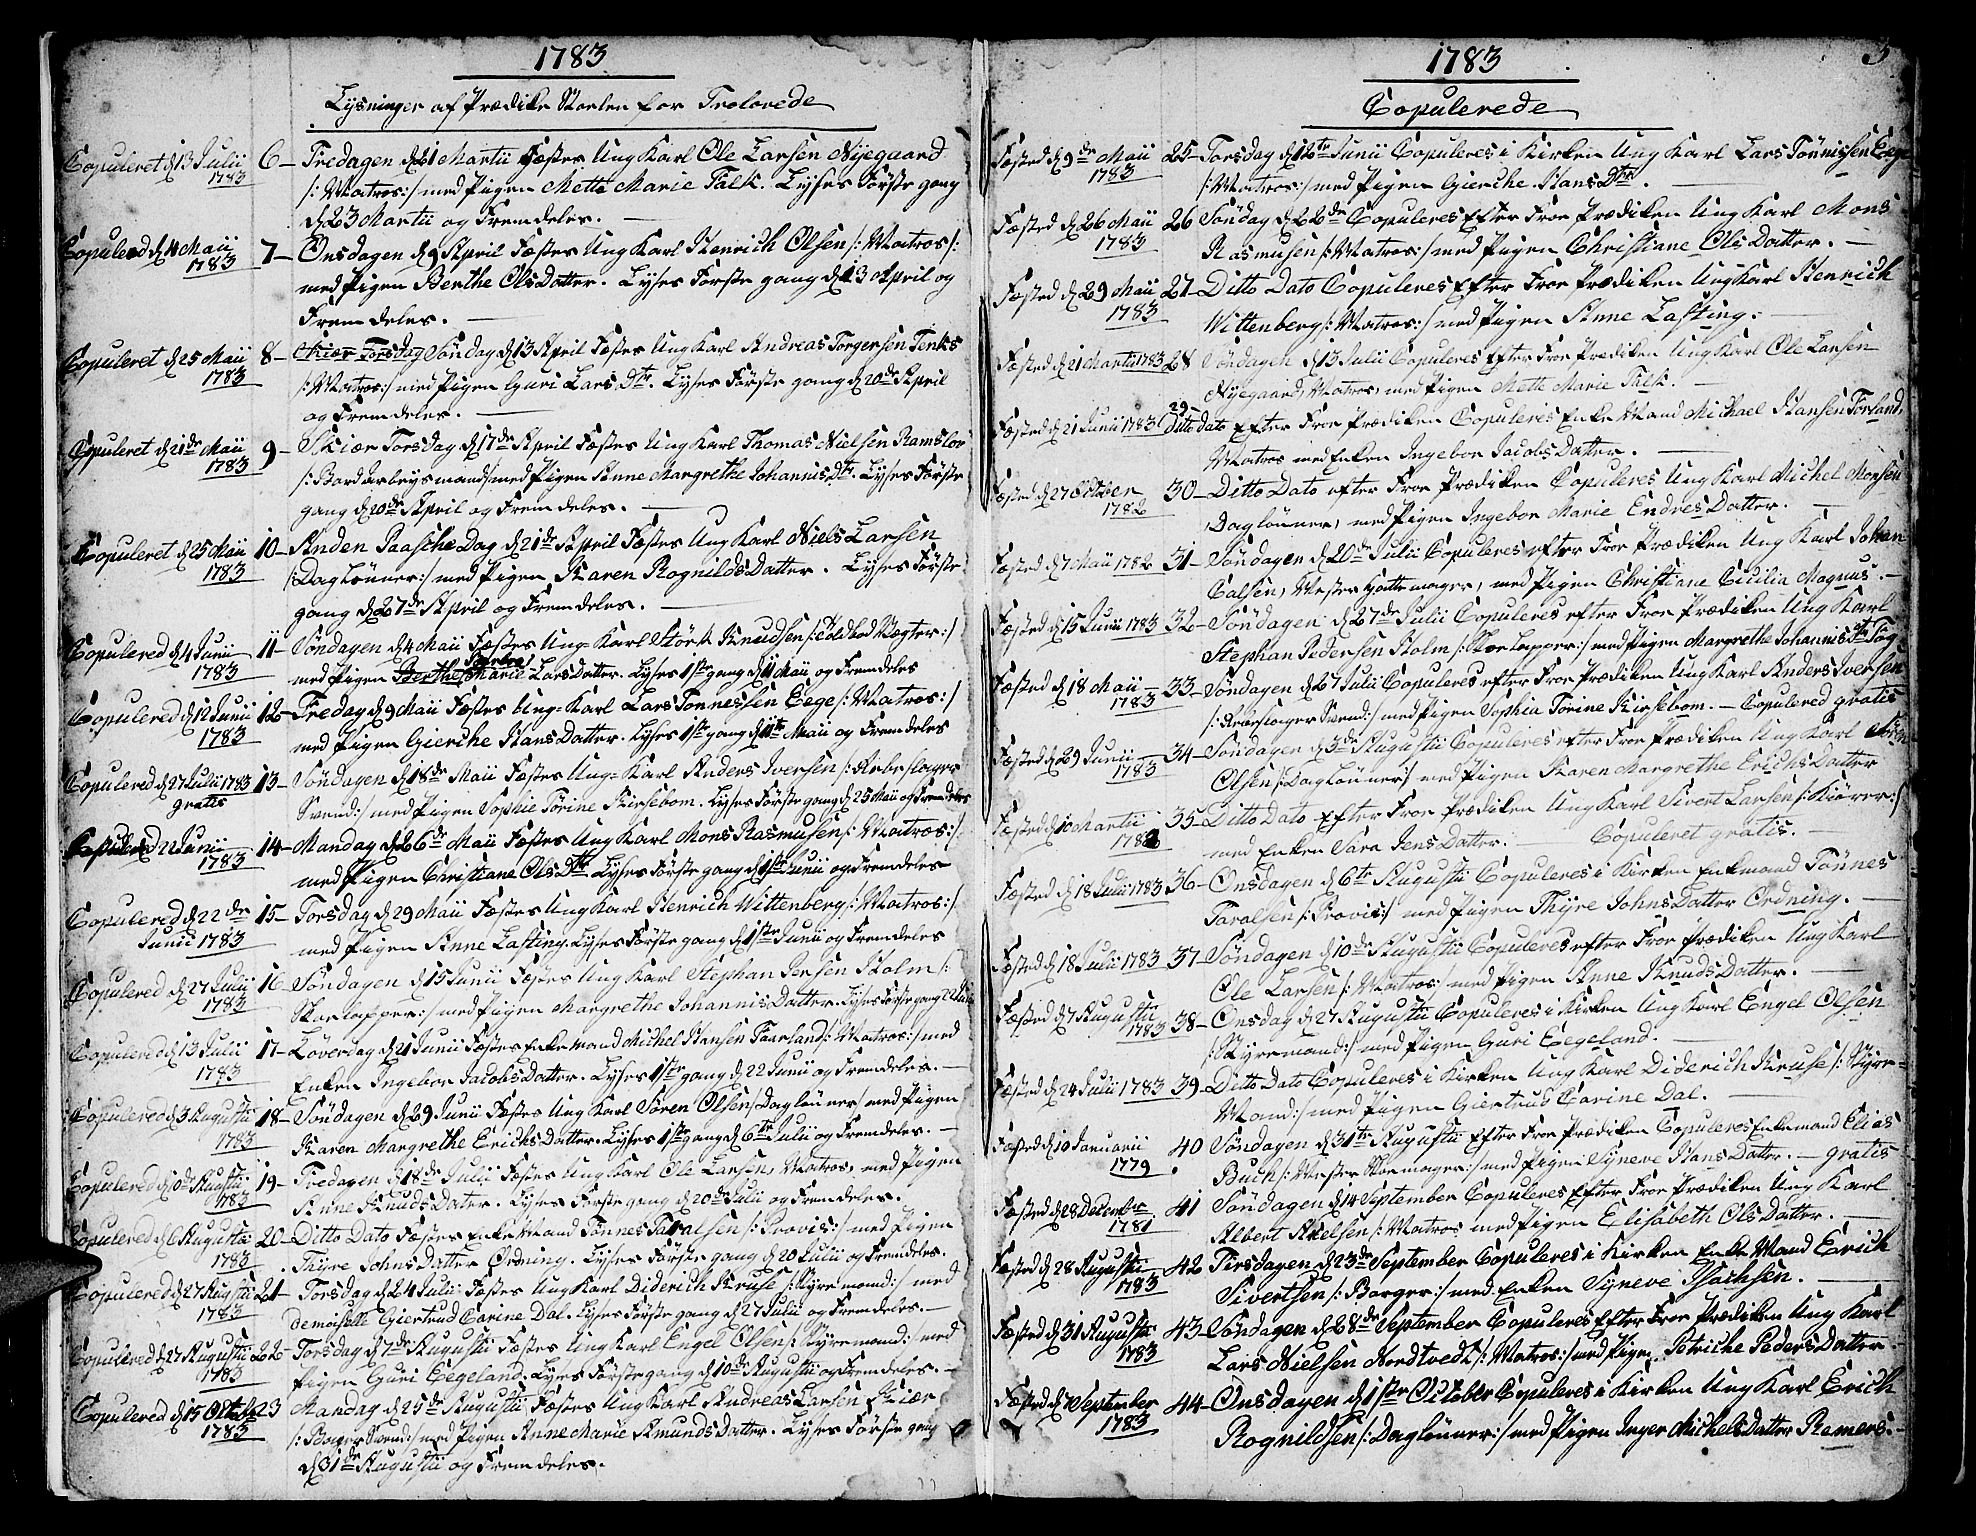 1783
Lysninger af Prædike Stoelen for Trolovede
Copuleret d 13 Julii 1783
6- Fredagen d 21 Martii Fæstes Ung Karl Ole Larsen Nyegaard
/:Matros:/ med Pigen Mette Marie Falk. Lyses Første gang
d 23 Martii og Fremdeles.
Copulered d 4 Maii 1783
7- Onsdagen d 9 April Fæstes Ung Karl Henrich Olsen /:Matros/:
med Pigen Berthe Ols Datter. Lyses Første gang d 13 April og
Fremdeles.
Copuleret d 25 Maii 1783
8- Skiær Torsdag Søndag d 13 April Fæstes Ung Karl Andreas Torgersen Tenks
/:Matros:/ med Pigen Guri Lars Dtr. Lyses Første gang d 20de April
og Fremdeles.
Copuleret d 21de Maii 1783
9- Skiær Torsdag d 17de April Fæstes Ung Karl Thomas Nielsen Ramslov
/:Bord Arbeysmand/ med Pigen Anne Margrethe Johannis Dtr. Lyses Første
gang d 20de April og Fremdeles.
Copuleret d 25 Maii 1783
10- Anden Paasche Dag d 21de April Fæstes Ung Karl Niels Larsen
/:Daglønner:/ med Pigen Karen Rognilds Datter. Lyses Første
gang d 27de April og Fremdeles.
Copulered d 4 Junii 1783
11- Søndagen d 4 Maii Fæstes Ung Karl Størk Knudsen /:Toldbod Vægter:/
med Pigen Berthe Marie Barbra Lars Datter. Lyses 1ste gang d 11 Maii og Fremdeles
Copulered d 12 Junii 1783
12- Fredag d 9 Maii Fæstes Ung-Karl Lars Tønnessen Eege /:Matros:/
med Pigen Gierche Hans Datter. Lyses 1ste gang d 11te Maii og Fremdeles
Copulered d 27 Julii 1783 gratis
13- Søndagen d 18de Maii Fæstes Ung-Karl Anders Iversen /:Rebslager
Svend:/ med Pigen Sophie Tørine Kirsebom. Lyses Første gang d 25 Maii og Fremdeles
Copulered 22 Junii 1783
14- Mandag d 26de Maii Fæstes Ung Karl Mons Rasmusen /:Matros:/
med Pigen Christiane Ols Dtr Lyses Første gang d 1ste Junii og Fremdeles
Copulered d 22de Junii 1783
15- Torsdag d 29 Maii Fæstes Ung Karl Henrich Wittenberg /:Matros:/
med Pigen Anne Lasting. Lyses Første gang d 1ste Junii og Fremdeles
Copulered d 27 Julii 1783
16- Søndagen d 15 Junii Fæstes Ung Karl Stephan Persen Holm /:
Skorlapper:/ med Pigen Margrethe Johannis Datter. Lyses Første gang 22 Junii
Copulered d 13 Julii 1783
17- Løverdag d 21 Junii Fæstes Enkemand Michel Hansen Faarland /:Matros:/ med
Enken Ingebor Jacobs Datter. Lyses 1ste gang d 22 Junii og Fremdeles.
Copulered d 3 Augustii 1783
18- Søndagen d 29 Junii Fæstes Ung Karl Søren Olsen /Daglønner/ med Pigen
Karen Margrethe Erichs Datter. Lyses 1ste gang d 6te Julii og Fremdeles.
Copulered d 10de Augustii 1783
19- Fredagen d 18de Julii Fæstes Ung Karl Ole Larsen, Matros, med Pigen
Anne Knuds Datter. Lyses Første gang d 20de Julii og Fremdeles.
Copulered d 6 Augustii 1783
20- Ditto Dato Fæstes Enke Mand Tønnes Taralsen /:Provis:/ med Pigen
Thÿre Johns Datter Ordning. Lyses Første gang d 20 Julii og Fremdeles.
Copulered d 27 Augustii 1783
21- Torsdag d 24 Julii Fæstes Ung Karl Diderich Kruse /:Styremand:/ med
demoiselle Giertrud Carine Dal. Lyses Første gang d 27 Julii og Fremdeles.
Copulered d 27 Augustii 1783
22- Torsdag d 7de Augustii Fæstes Ung Karl Engel Olsen /:Styremand:/ med
Pigen Guri Eegeland. Lyses Første gang d 10de Augustii og Fremdeles.
Copulered d 15 October 1783
23 Mandag d 25de Augustii Fæstes Ung Karl Andreas Larsen Skiær
/:Bager Svend:/ med Pigen Anne Marie Amunds Datter. Lyses Første gang
d 31de Augustii og Fremdeles.
1783
3
Copulerede
Fæsted d 9de Maii 1783
25- Torsdag d 12te Junii Copuleres i Kirken Ung Karl Lars Tønnissen Eege
/:Matros:/ med Pigen Gierche Hans Dtr.
Fæsted d 26 Maii 1783
26 Søndag d 22de Copuleres Efter Froe Prædiken Ung Karl Mons
Rasmusen /:Matros:/ med Pigen Christiane Ols Datter.
Fæsted d 29 Maii 1783
27- Ditto Dato Copuleres Efter Froe Prædiken Ung Karl Henrich
Wittenberg /:Matros:/ med Pigen Anne Lasting.
Fæsted d 21 Martii 1783
28 Søndagen d 13 Julii Copuleres Efter Froe Prædiken Ung Karl Ole Larsen
Nyegaard, Matros, med Pigen Mette Marie Falk.
Fæsted d 21 Junii 1783
29- Ditto Dato Efter Froe Prædiken Copuleris Enke Mand Michael Hansen Forland,
Matros med Enken Ingebor Jacobs Datter.
Fæsted d 27 October 1782
30- Ditto Dato efter Froe Prædiken Copuleres Ung Karl Michel Monsen
, Daglønner, med Pigen Ingebor Marie Endres Datter.
Fæsted d 7 Maii 1782
31- Søndagen d 20de Julii Copuleres efter Froe Prædiken Ung Karl Johan
Calsen, Mester Hattemager, med Pigen Christiane Cicilia Magnus.
Fæsted d 15 Junii 1783
32- Søndagen d 27de Julii Copuleres efter Froe Prædiken Ung Karl
Stephan Pedersen Holm /:Skorlapper:/ med Pigen Margrethe Johannis Dtr Tøg
Fæsted d 18 Maii 1783
33- Søndagen d 27 Julii Copuleres efter Froe Prædiken Ung Karl Anders Iversen
/:Rebslager Svend:/ med Pigen Sophia Tørine Kirsebom. - Copulered gratis
Fæsted d 29 Junii 1783
34- Søndagen d 3de Augustii Copuleres efter Froe Prædiken Ung Karl Søren
Olsen /:Daglønner:/ med Pigen Karen Margrethe Erichs Datter
Fæsted d 10 Martii 1782
35- Ditto Dato Efter Froe Prædiken Ung Karl Sivert Larsen /:Kiører:/
med Enken Sara Jens Datter. - Copuleret gratis.
Fæsted d 18 Julii 1783
36- Onsdagen d 6te Augustii Copuleres i Kirken Enkemand Tønnes
Taralsen /:Provis:/ med Pigen Thÿre Johns Datter Ordning.
Fæsted d 18 Julii 1783
37- Søndagen d 10de Augustii Copuleres efter Froe Prædiken Ung Karl
Ole Larsen /:Matros:/ med Pigen Anne Knuds Datter.
Fæsted d 7 Augustii 1783
38- Onsdag d 27 Augustii Copuleres i Kirken Ung Karl Engel Olsen
/:Styremand:/ med Pigen Guri Eegeland.
Fæsted d 24 Julii 1783
39- Ditto Dato Copuleres i Kirken Ung Karl Diderich Kruse /:Styre-
Mand:/ med Pigen Giertrus Carine Dal.
Fæsted d 10 Januarii 1779
40 Søndagen d 31te Augustii Efter Froe Prædiken Copuleres Enkemand Elias
Buch /:Mester Skomager:/ med Pigen Syneve Hans Datter. - gratis
Fæsted d 28 December 1781
41 Søndagen d 14 September Copuleres Efter Froe Prædiken Ung Karl
Albert Axelsen /:Matros med Pigen Elisabeth Ols Datter.
Fæsted d 28 Augustii 1783
42 Tirsdagen d 23de September Copuleres i Kirken Enke Mand Erich
Sivertsen /:Borger:/ med Enken Syneve Isachsen.
Fæsted d 31 Augustii 1783
43- Søndagen d 28de September Copuleres Efter Froe Prædiken Ung Karl
Lars Nielsen Nordtvedt /:Matros:/ med Pigen Petriche Peders Datter
Fæsted d 7 September 1783
44- Onsdagen d 1ste October Copuleres i Kirken Ung Karl Erich
Rognildsen /:Daglønner:/ med Pigen Inger Michels Datter Remers.